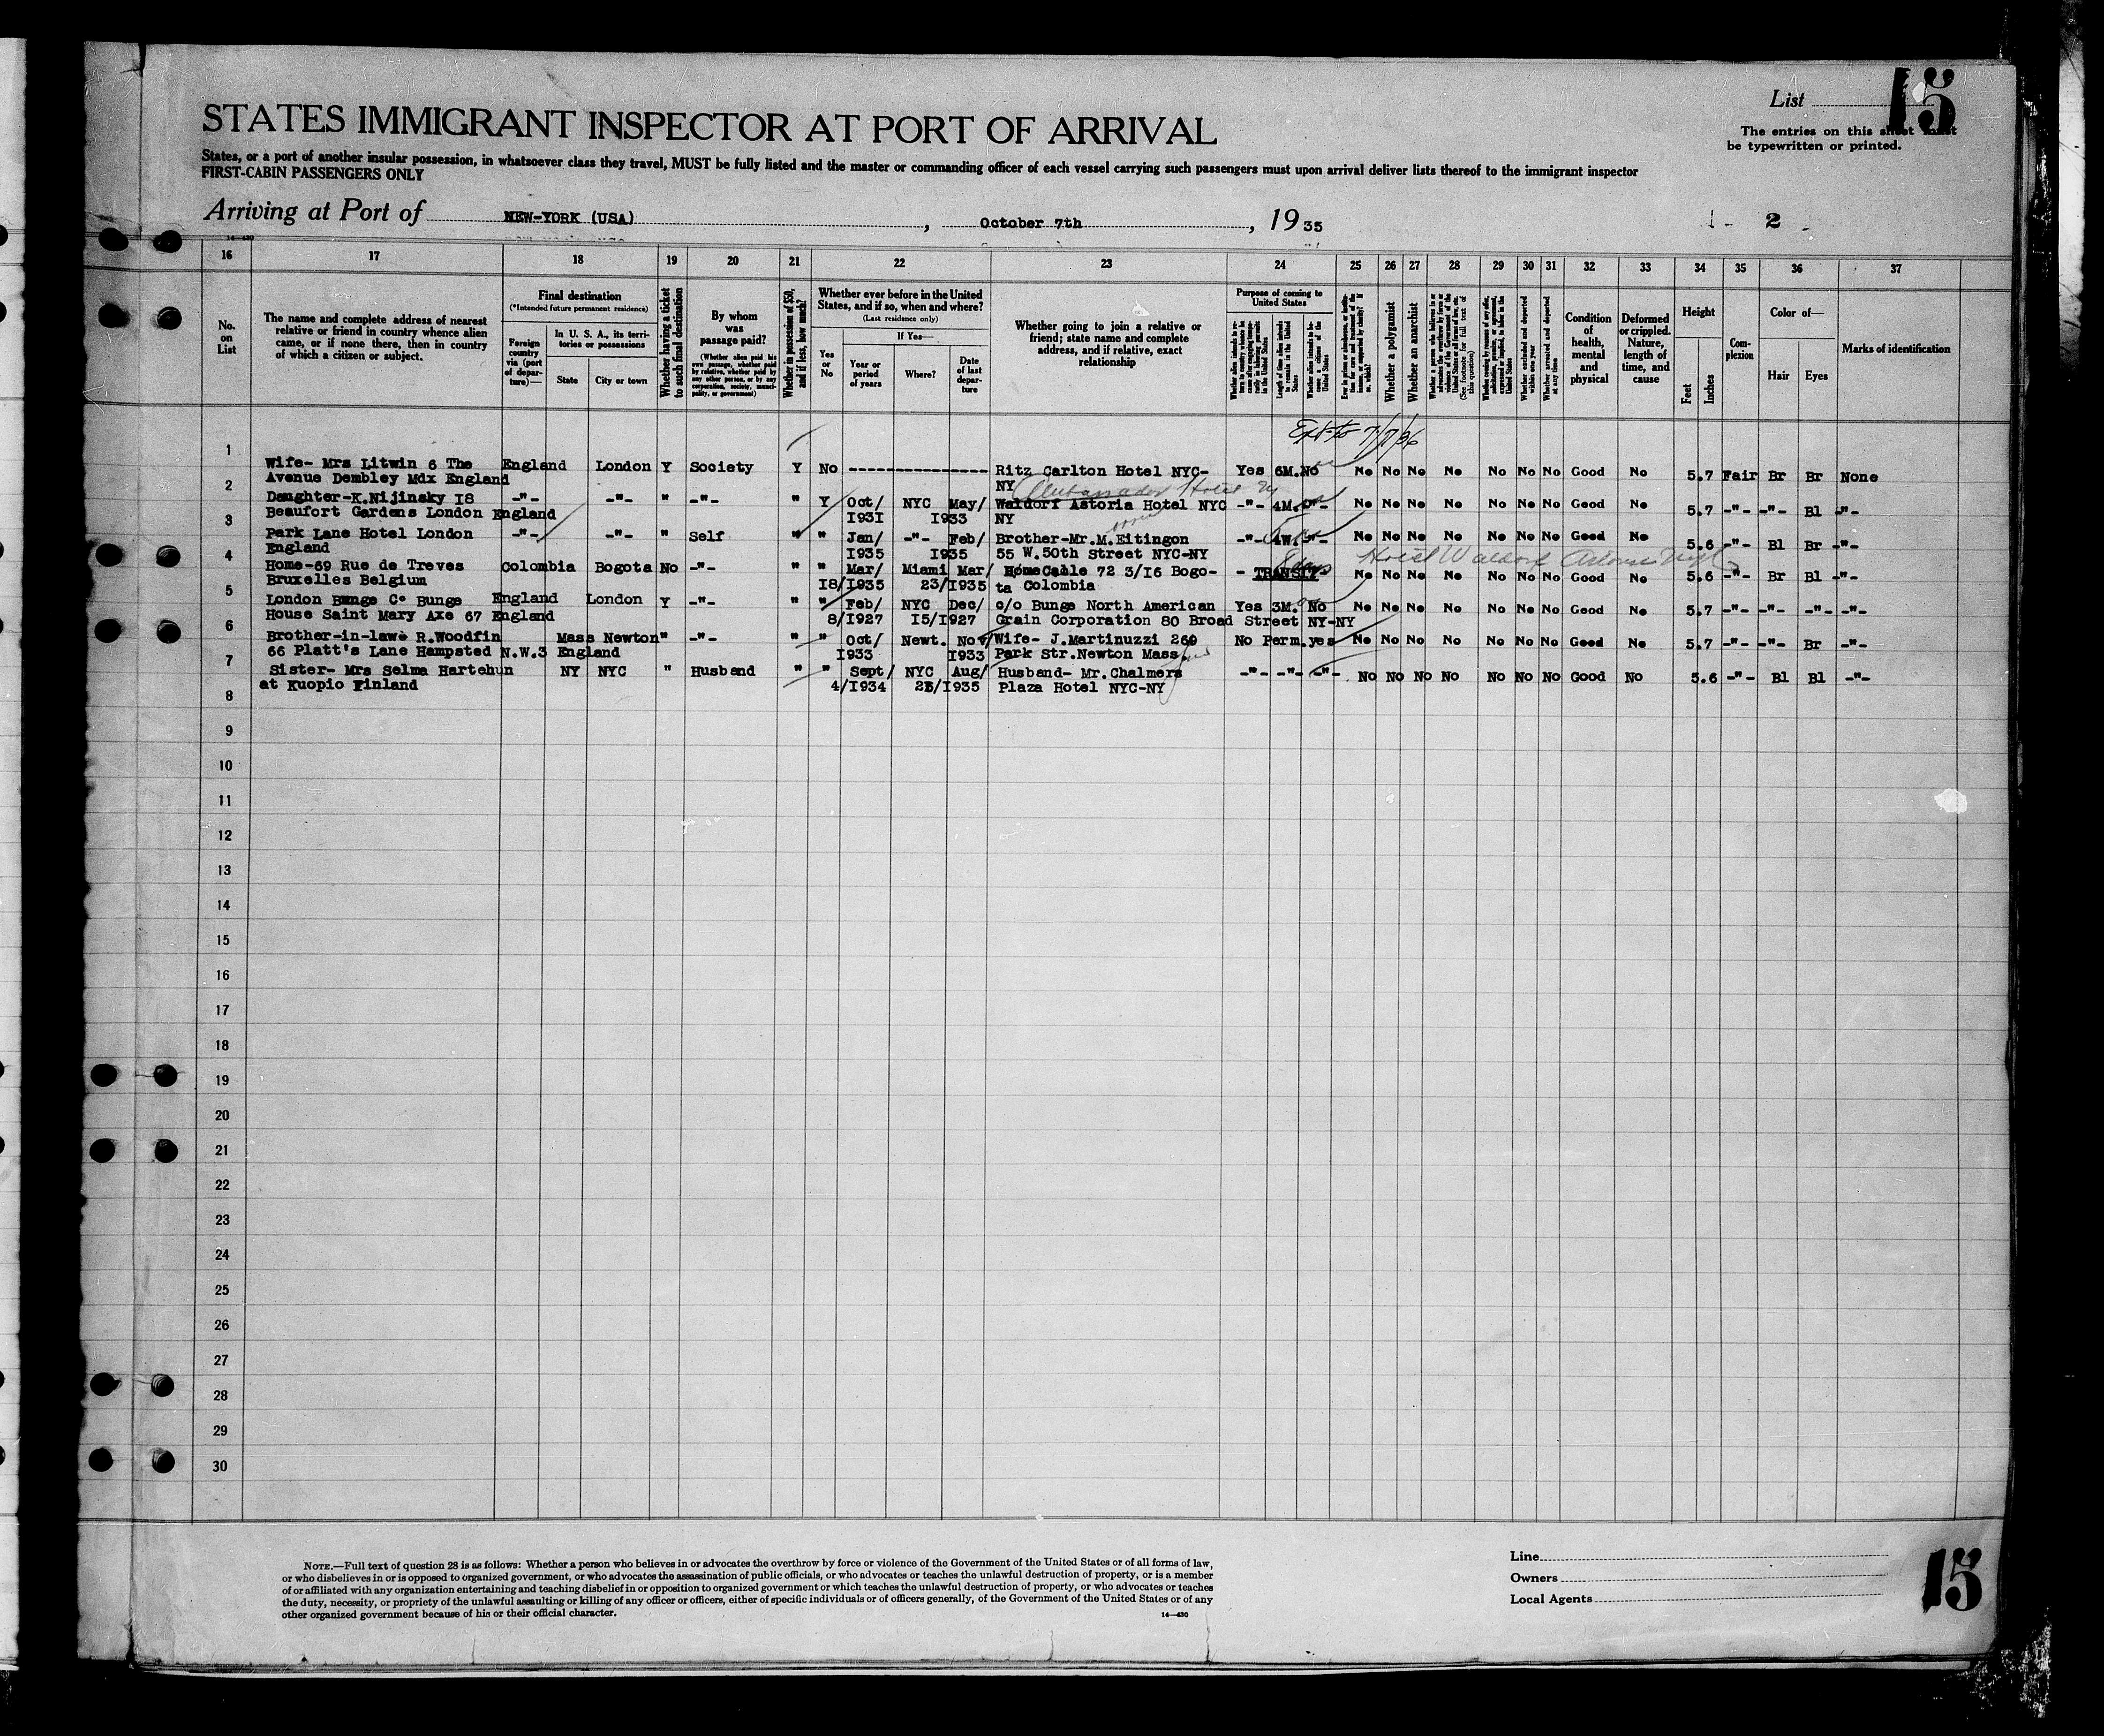 List 15
The entries on this sheet must
be typewritten or printed.
STATES IMMIGRANT INSPECTOR AT PORT OF ARRIVAL
States, or a port of another insular possession, in whatsoever class they travel, MUST be fully listed and the master or commanding officer of each vessel carrying such passengers must upon arrival deliver lists thereof to the immigrant inspector
FIRST-CABIN PASSENGERS ONLY
Arriving at Port of NEW-YORK (USA), October 7th, 1935
2
16 17 18 19 20 21 22 23 24 25 26 27 28 29 30 31 32 33 34 35 36 37
No. on List
The name and complete address of nearest relative or friend in country whence alien came, or if none there, then in country of which a citizen or subject.
Final destination
(*Intended future permanent residence)
Foreign country via (port of departure)—
In U. S. A., its territories or possessions
State
City or town
Whether having a ticket to such final destination
By whom was passage paid?
(Whether alien paid his own passage, whether paid by relative, whether paid by any other person, or by any corporation, society, municipality, or government)
Whether in possession of $50, and if less, how much?
Whether ever before in the United States, and if so, when and where?
(Last residence only)
Yes or No
If Yes—
Year or period of years
Where?
Date of last departure
Whether going to join a relative or friend; state name and complete address, and if relative, exact relationship
Purpose of coming to United States
Whether a polygamist
Whether an anarchist
Whether arrested and deported at any time
Condition of health, mental and physical
Deformed or crippled. Nature, length of time, and cause
Height
Feet
Inches
Complexion
Color of—
Hair
Eyes
Marks of identification
Ext to 7/7/36
1
Wife- Mrs Litwin 6 The England London Y Society Y No ---------------- Ritz Carlton Hotel NYC- Yes 6M. No No No No No No No No Good No 5.7 Fair Br Br None
Avenue Dembley Mdx England NY
Ambassador Hotel
2
Daughter-K.Nijinsky I8 -"- -"- " -"- " Y Oct/ NYC May/ Waldorf Astoria Hotel NYC -"- 4M. -"- No No No No No No No Good No 5.7 -"- -"- Bl -"-
Beaufort Gardens London England I931 I933 NY
3
Park Lane Hotel London -"- -"- " Self " " Jan/ -"- Feb/ Brother-Mr.M.Eitingon -"- 4W. -"- No No No No No No No Good No 5.6 -"- Bl Br -"-
England I935 I935 55 W.50th Street NYC-NY
Hotel Waldorf Astoria
4
Home-69 Rue de Treves Colombia Bogota No -"- " " Mar/ Miami Mar/ Home Calle 72 3/16 Bogo- - TRANSIT- No No No No No No No Good No 5.6 -"- Br Bl -"-
Bruxelles Belgium I8/I935 23/I935 ta Colombia
5
London Bunge C° Bunge England London Y -"- " " Feb/ NYC Dec/ c/o Bunge North American Yes 3M. No No No No No No No No Good No 5.7 -"- -"- -"- -"-
House Saint Mary Axe 67 England 8/I927 I5/I927 Grain Corporation 80 Broad Street NY-NY
6
Brother-in-law R.Woodfin Mass Newton " -"- " " Oct/ Newt. Nov/ Wife- J.Martinuzzi 260 No Perm. yes No No No No No No No Good No 5.7 -"- -"- Br -"-
66 Platt's Lane Hampsted N.W.3 England I933 I933 Park Str.Newton Mass.
7
Sister- Mrs Selma Hartehun NY NYC " Husband " " Sept/ NYC Aug/ Husband- Mr.Chalmers -"- -"- -"- No No No No No No No Good No 5.6 -"- Bl Bl -"-
at Kuopio Finland 4/I934 /I935 Plaza Hotel NYC-NY
8
9
10
11
12
13
14
15
16
17
18
19
20
21
22
23
24
25
26
27
28
29
30
NOTE.—Full text of question 28 is as follows: Whether a person who believes in or advocates the overthrow by force or violence of the Government of the United States or of all forms of law,
or who disbelieves in or is opposed to organized government, or who advocates the assassination of public officials, or who advocates or teaches the unlawful destruction of property, or is a member
of or affiliated with any organization entertaining and teaching disbelief in or opposition to organized government or which teaches the unlawful destruction of property, or who advocates or teaches
the duty, necessity, or propriety of the unlawful assaulting or killing of any officer or officers, either of specific individuals or of officers generally, of the Government of the United States or of any
other organized government because of his or their official character.
14—430
Line
Owners
Local Agents
15